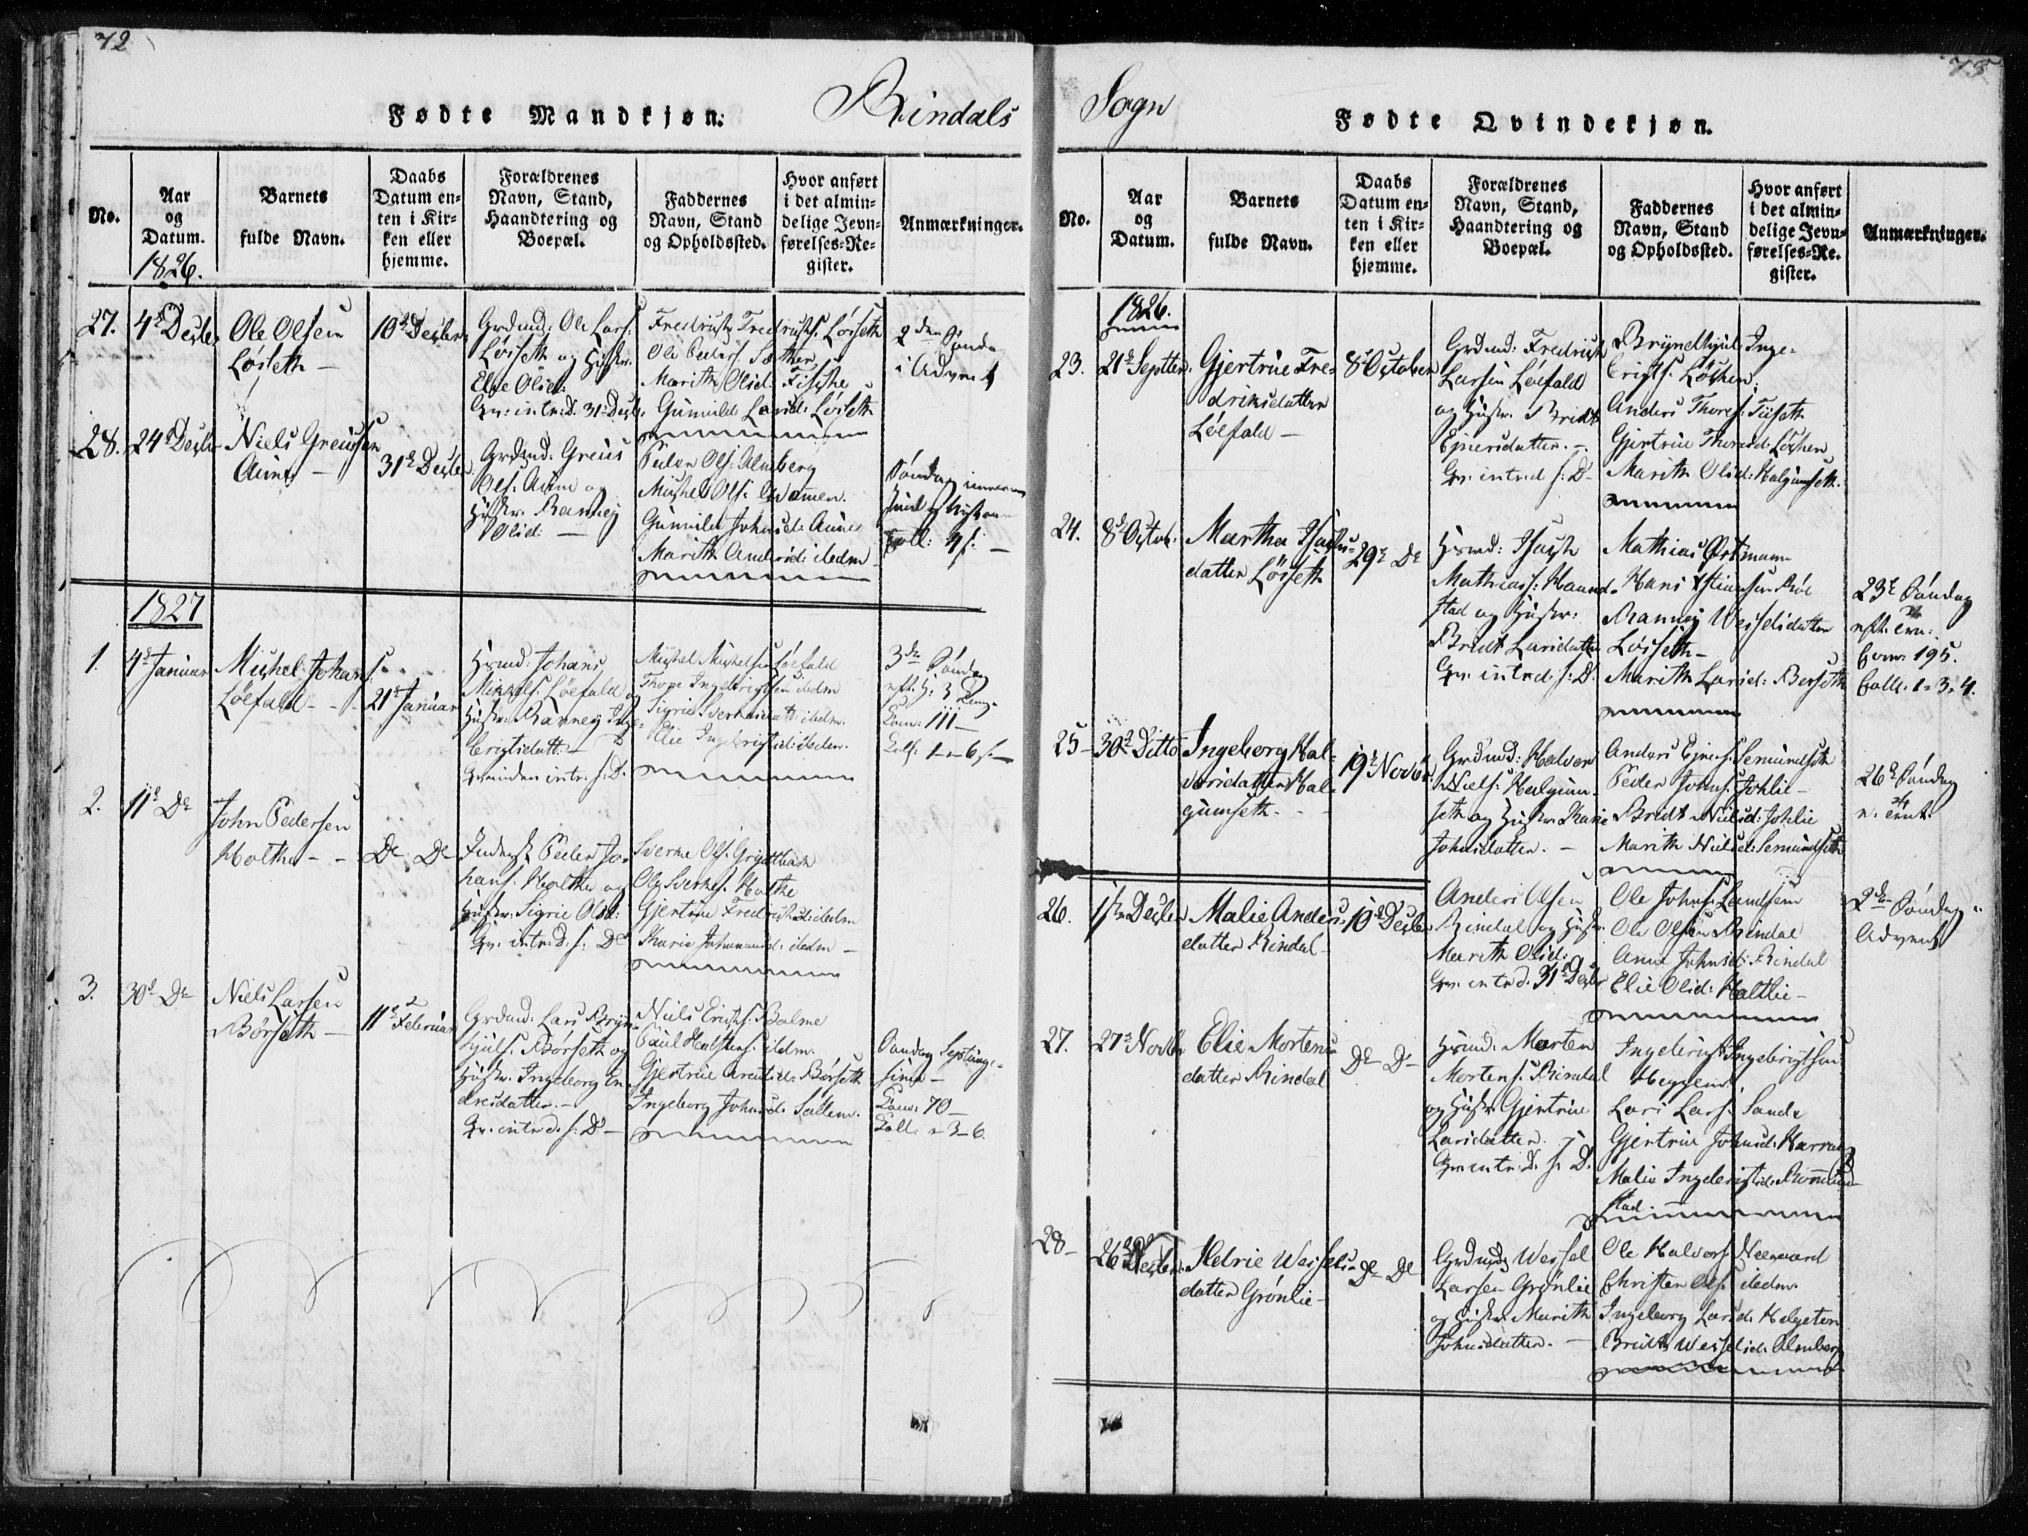 72
Fødte Mandkjøn.
Rindals
No.
Aar
og
Datum.
Barnets
fulde Navn.
Daabs
Datum en-
ten i Kir-
ken eller
hjemme.
Forældrenes
Navn, Stand,
Haandtering og
Boepæl.
Faddernes
Navn, Stand
og Opholdssted.
Hvor anført
i det almin-
delige Jevn-
førelses-Re-
gister.
Anmærkninger.
1826.
27.
4de Decbr
Ole Olsen
Løsseth
10de Decbr
Grdmd: Ole Lars:
Løsseth og Hustr.
Elie Olsd:
31 Decb.
Fredrich Fredrichs: Løsseth
Ole Peders: Sæther
Marith Olsd: Fiske
Gunnild Larsd: Løseth
2den Sønda
i Advent
28.
24de Decbr
Niels Greussen
Aune
31de Decbr
Grdmd. Greus
Ols: Aune og
Hustr. Ranney
Olsd:
Peder Ols: Almberg
Mischel Ols:
Gunnild Johnsd: Aune
Marith Andersd: ibdm
1827
1.
4de Januar
Mischel Johans:
Løefald
21de Januar
Husmd: Johans
Mikkels: Løefald og
Hustr. Ranney Inge-
brigtsdatt.
Mischel Mischelsen Løefald
Thore Ingebrigtsen ibdm
Sigrie Sverkesdatt: ibdm.
Elie Ingebrigtsd: ibdm.
3die Søndag
Com: 111
2.
11te Do
John Pedersen
Holthe
Do Do
Peder Jo-
hans: Holthe og
Hustr: Sigrie Olsd:
Sverke Ols: Grytbak
Ole Sverkes: Holthe
Gjertrue Fredrichsd: ibdm
Karie Johannesd: ibdm
3.
30de Do
Niels Larsen
Børseth
11te Februar
Grdmd. Lars Bryn-
hjuls: Børseth og
Hustr. Ingeborg En-
dresdatter.
Niels Erichs: Bolme
Paul Halstens: ibdm.
Gjertrue Arntsd: Børseth
Ingeborg Johnsd: Sollem.
Søndag Septuage-
sima
Com: 70
Coll: 3-6.
75
Sogn
Fødte Qvindekjøn.
No.
Aar
og
Datum.
Barnets
fulde Navn.
Daabs
Datum en-
ten i Kir-
ken eller
hjemme.
Forældrenes
Navn, Stand,
Haandtering og
Boepæl.
Faddernes
Navn, Stand
og Opholdssted.
Hvor anført
i det almin-
delige Jevn-
førelses-Re-
gister.
Anmærkninger.
1826.
23.
21de Septbr.
Gjertrue Fre-
driksdatter
Løefald
8de October
Grdmd: Fredrich
Larsen Løefald
og Hustr. Bridt
Ejnersdatter.
Brynelhjul Inge-
brigts: Løsken
Anders Thores: Tiiseth
Gjertrue Thoresd: Løsken
Marith Olsd: Halgunseth.
24.
8de Octob.
Martha Isachs-
datter Løsseth
29de Do
Husmd: Isach
Mathiass: Haund-
stad og Hustr.
Bridt Larsdatter
Mathias Østmann
Ranney Wesselsdatter
Løsseth
Marith Larsd: Børseth
23de Søndag
Com: 195.
Coll. 1-3-4.
25
30te Ditto
Ingeborg Hal-
vorsdatter Hal-
gumseth.
19de Novbr.
Grdmd: Halvor
Niels: Halgum-
seth og Hustr. Karie
Johnsdatter.
Anders Ejners: Semundseth
Peder Johns: Johlie
Bridt Nielsd: Johlie
Marith Nielsd: Semundseth
26de Søndag
26.
1ste Decbr
Malie Anders-
datter Rindal
10de Decbr
Anders Olsen
Rindal og Hustr.
Marith Olsd:
31te Decbr
Ole Johns: Landsem
Ole Olsen Rindal
Anne Johnsd: Rindal
Elie Olsd: Holtlie
2den Søndag
Advent
27.
27de Novbr
Elie Mortens-
datter Rindal
Do Do
Husmd. Morten
Mortens: Rindal
og Hustr. Gjertrue
Larsdatter.
Ingebrigt Ingebrigtsen
Heggem
Lars Lars: Sande
Gjertrue Johnsd: Harrang
Malie Ingebrigtsd: Rommund-
stad
28
26de Decbr.
Sidrie Wessels-
datter Grønlie
Do Do
Grdmd. Wessel
Larsen Grønlie
og Hustr. Marith
Johnsdatter.
Ole Halvors: Neergaard
Christen Ols: ibdm.
Ingeborg Larsd: Helgeton
Bridt Wesselsd: Almberg